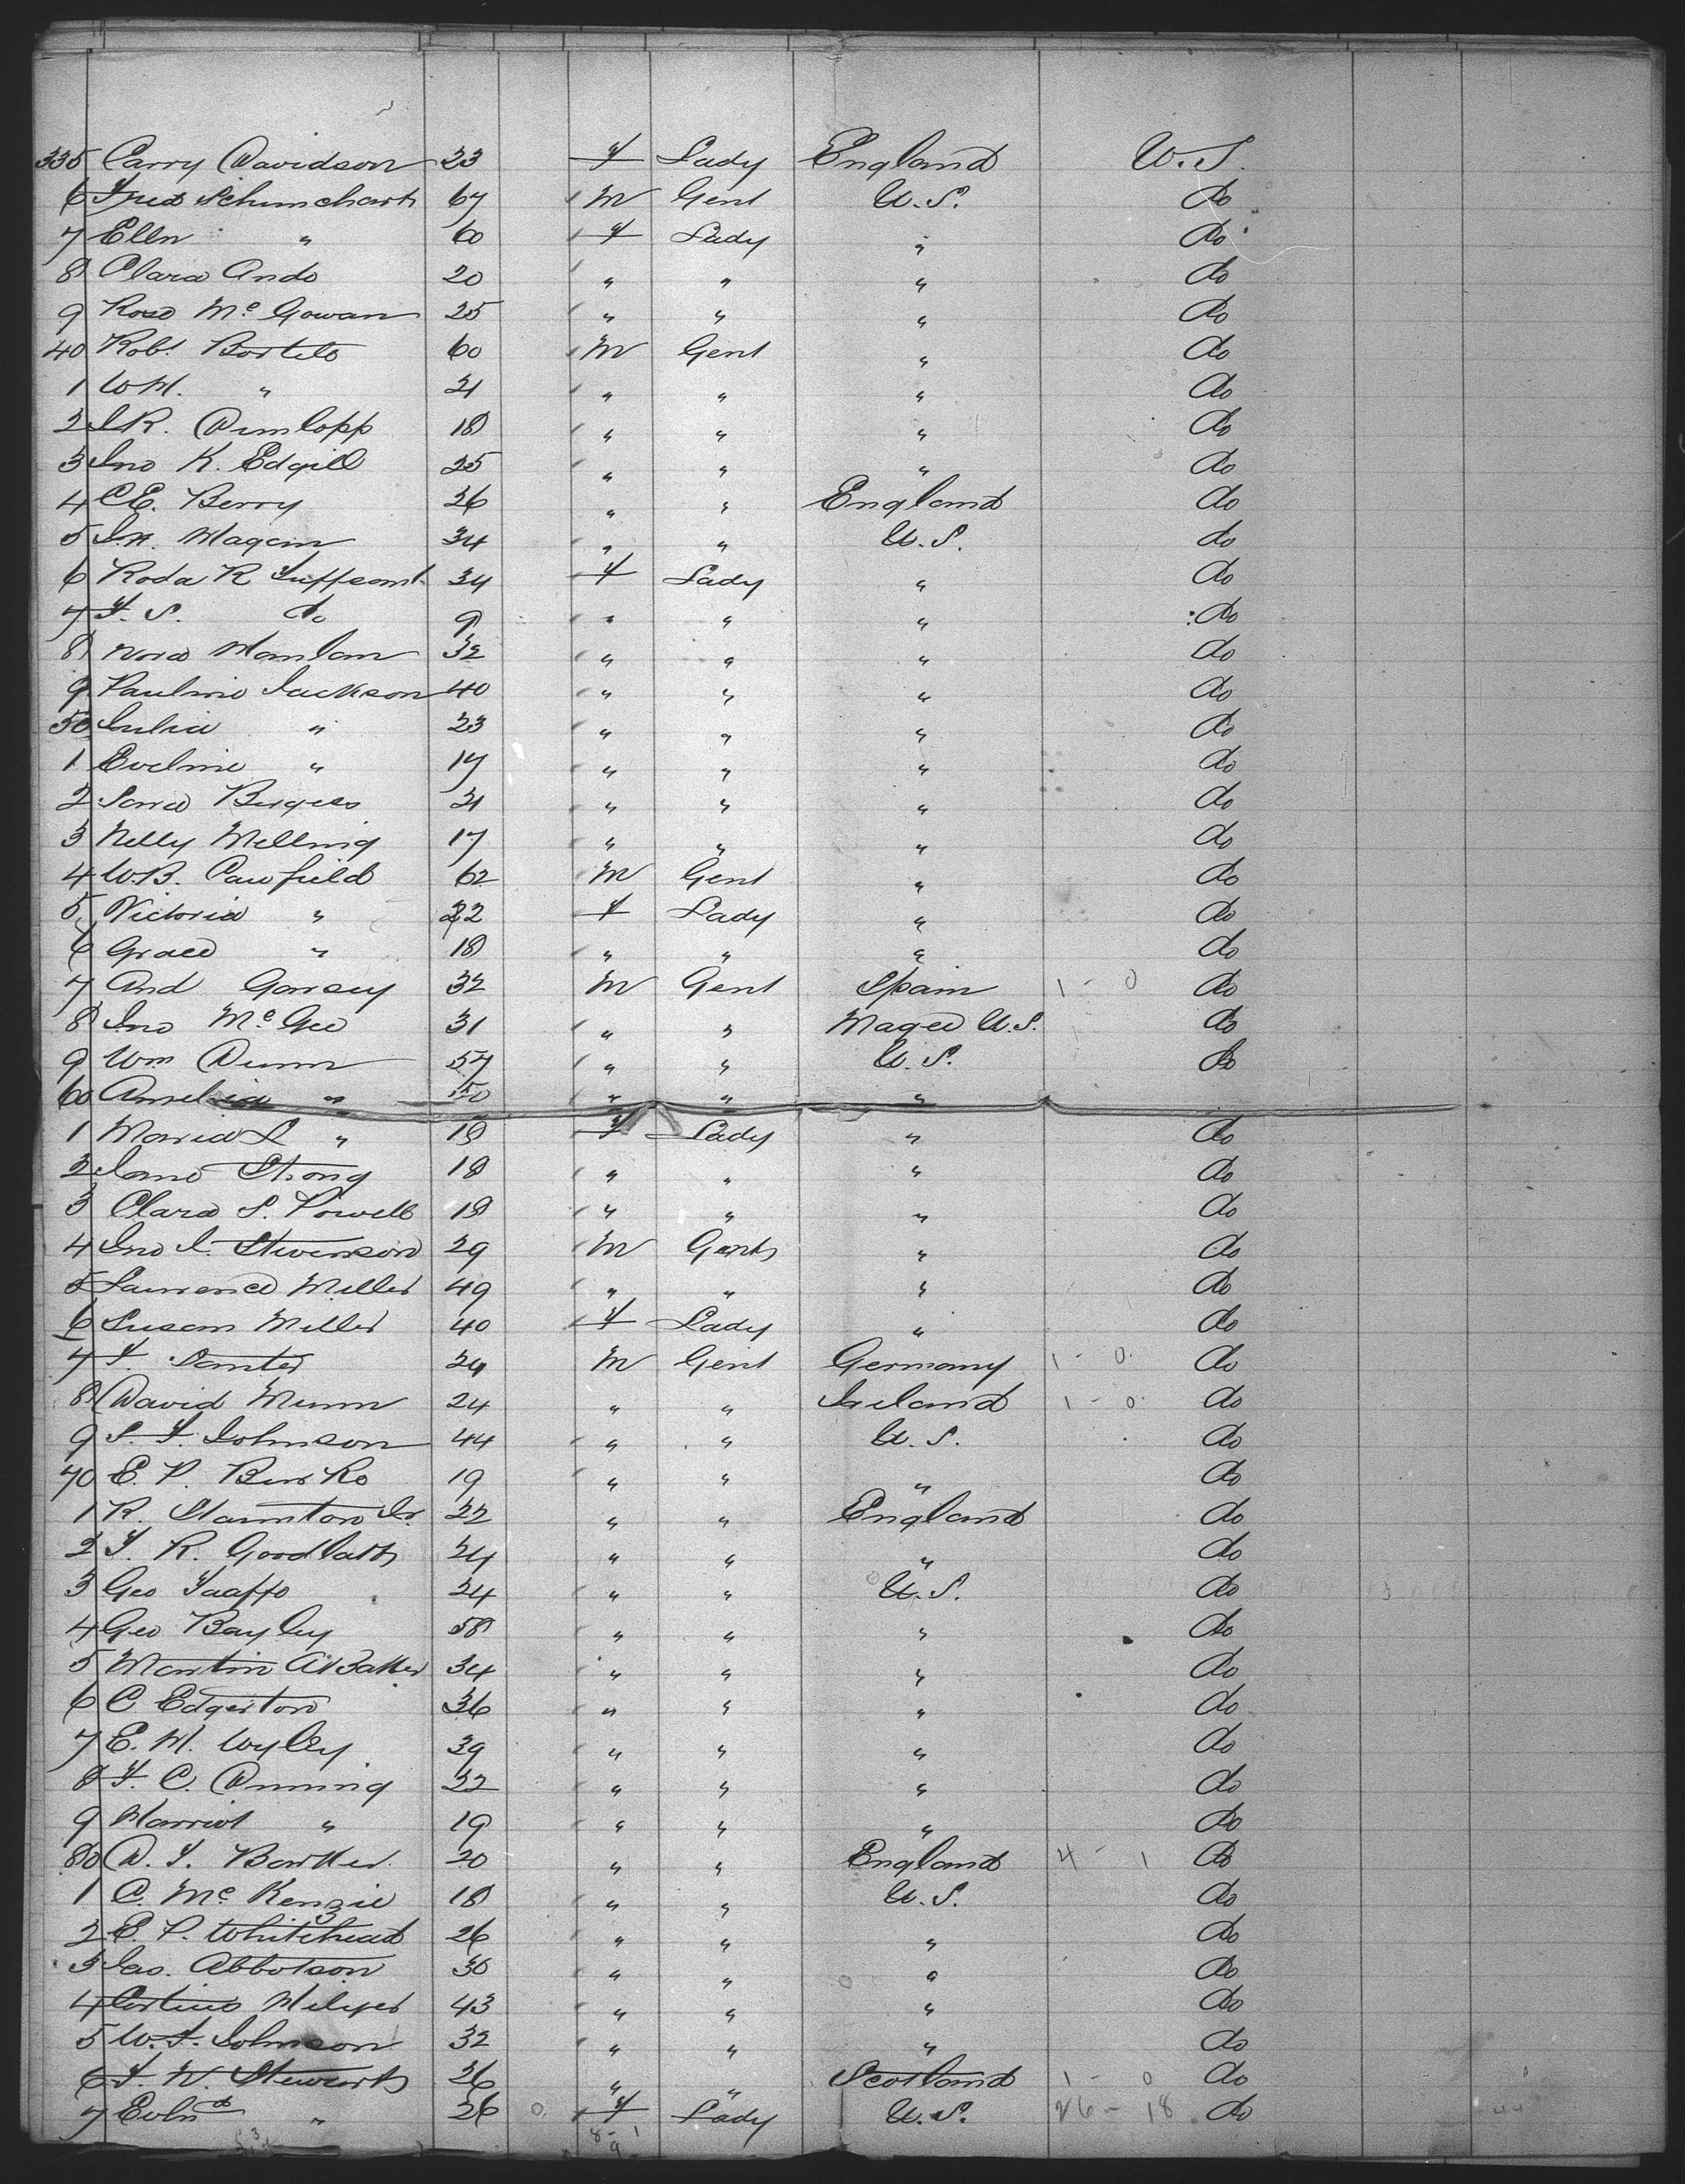 335 Carry Davidson 23 f Lady England U.S.
6 Fred Schunchart 67 M Gent U.S. do
7 Ellen " 60 f Lady " do
8 Clara Ando 20 " " " do
9 Rose Mc Gowan 25 " " " do
40 Robt. Bortels 60 M Gent " do
1 W H. " 21 " " " do
2 J R. Dunlopp 18 " " " do
3 Jno K. Edgill 25 " " " do
4 C E. Berry 26 " " England do
5 J. H. Hagan 34 " " U.S. do
6 Roda R 34 f Lady " do
7 F. S. do 9 " " " do
8 Nora Hanlan 32 " " " do
9 Pauline Jackson 40 " " " do
50 Julia " 23 " " " do
1 Eveline " 17 " " " do
2 Sara Burgess 21 " " " do
3 Nelly Melling 17 " " " do
4 W.B. Canfield 62 M Gent " do
5 Victoria " 22 f Lady " do
6 Grace " 18 " " " do
7 And 32 M Gent Spain 1 - 0 do
8 Jno Mc Gee 31 " " U.S. do
9 Wm Dunn 57 " " U.S. do
60 Amelia " 50 " " "
1 Maria L " 19 f Lady " do
2 Jane Strong 18 " " " do
3 Clara S. Powell 19 " " " do
4 Jno J. Stevenson 29 M Gents " do
5 Laurence Miller 49 " " " do
6 Susan Miller 40 f Lady " do
7 F. Santer 24 M Gent Germany 1 - 0 do
8 David Munn 24 " " Ireland 1 - 0 do
9 S. F. Johnson 44 " " U.S. do
70 E. P. Burke 19 " " " do
1 R. Staunton Jr. 22 " " England do
2 F. R. 24 " " " do
3 Geo Taaffe 24 " " U.S. do
4 Geo Bayley 58 " " " do
5 Martin A Baker 34 " " " do
6 C Edgerton 36 " " " do
7 E. H. Wyley 39 " " " do
8 F. C. Dunning 22 " " " do
9 Harriot " 19 " " " do
80 D. F. Barker 20 " " England 4 - 1 do
1 C. Mc Kenzie 18 " " U.S. do
2 E. P. Whitehead 26 " " " do
3 Jas. Abbotson 30 " " " do
4 43 " " " do
5 W. F. Johnson 32 " " " do
6 F. W. Stewart 26 " " Scotland 1 - 0 do
7 " 26 0 f Lady U.S. 26 - 18 do
8 - 1
9